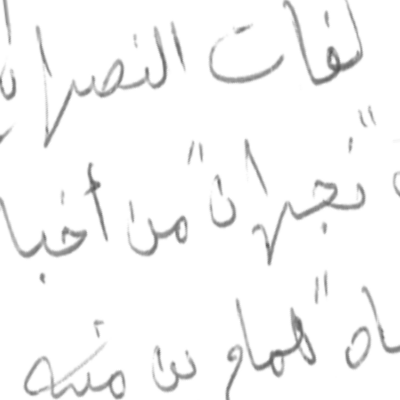 لفات النصرا
"نجران" من أخبا
اه "همام بن منبه